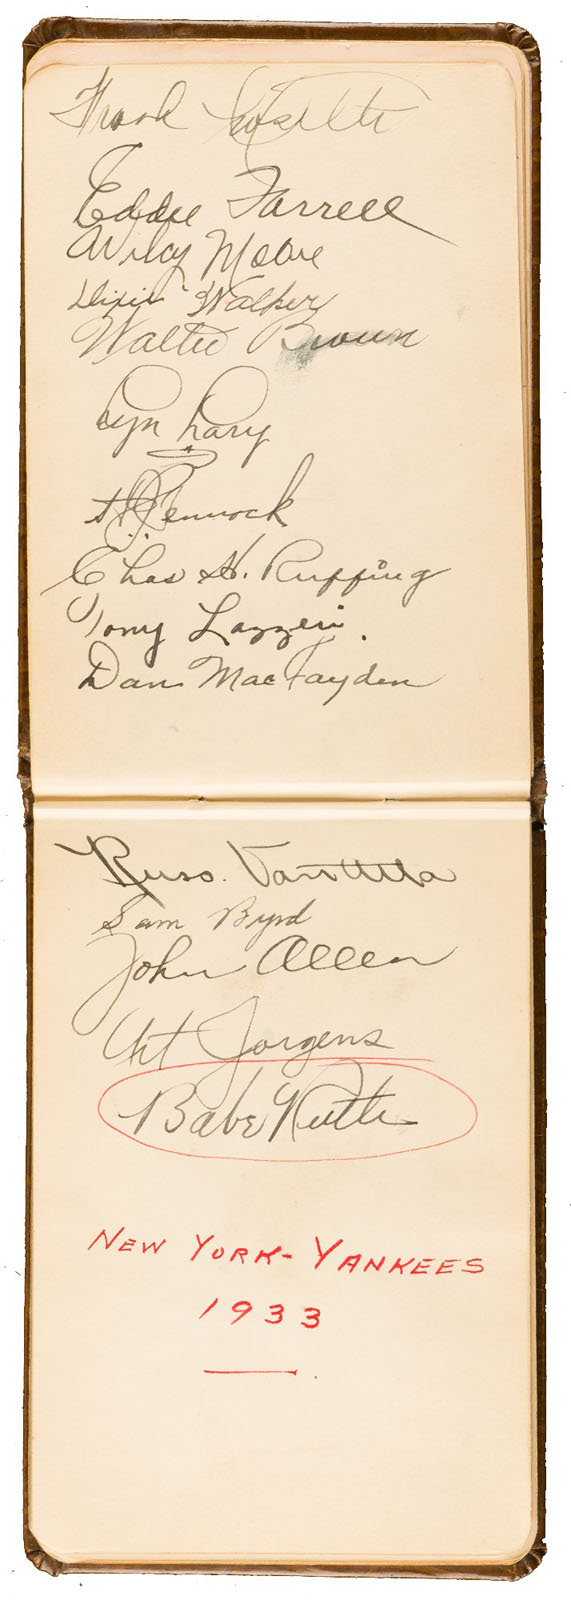 Frank Crosetti
Eddie Farrell
Wilcy Moore
Dixie Walker
Walter Brown
Lyn Lary
H.J. Pennock
Chas H. Ruffing
Tony Lazzeri.
Dan MacFayden
Russ. Van Atta
Sam Byrd
John Allen
Art Jorgens
Babe Ruth
NEW YORK - YANKEES
1933